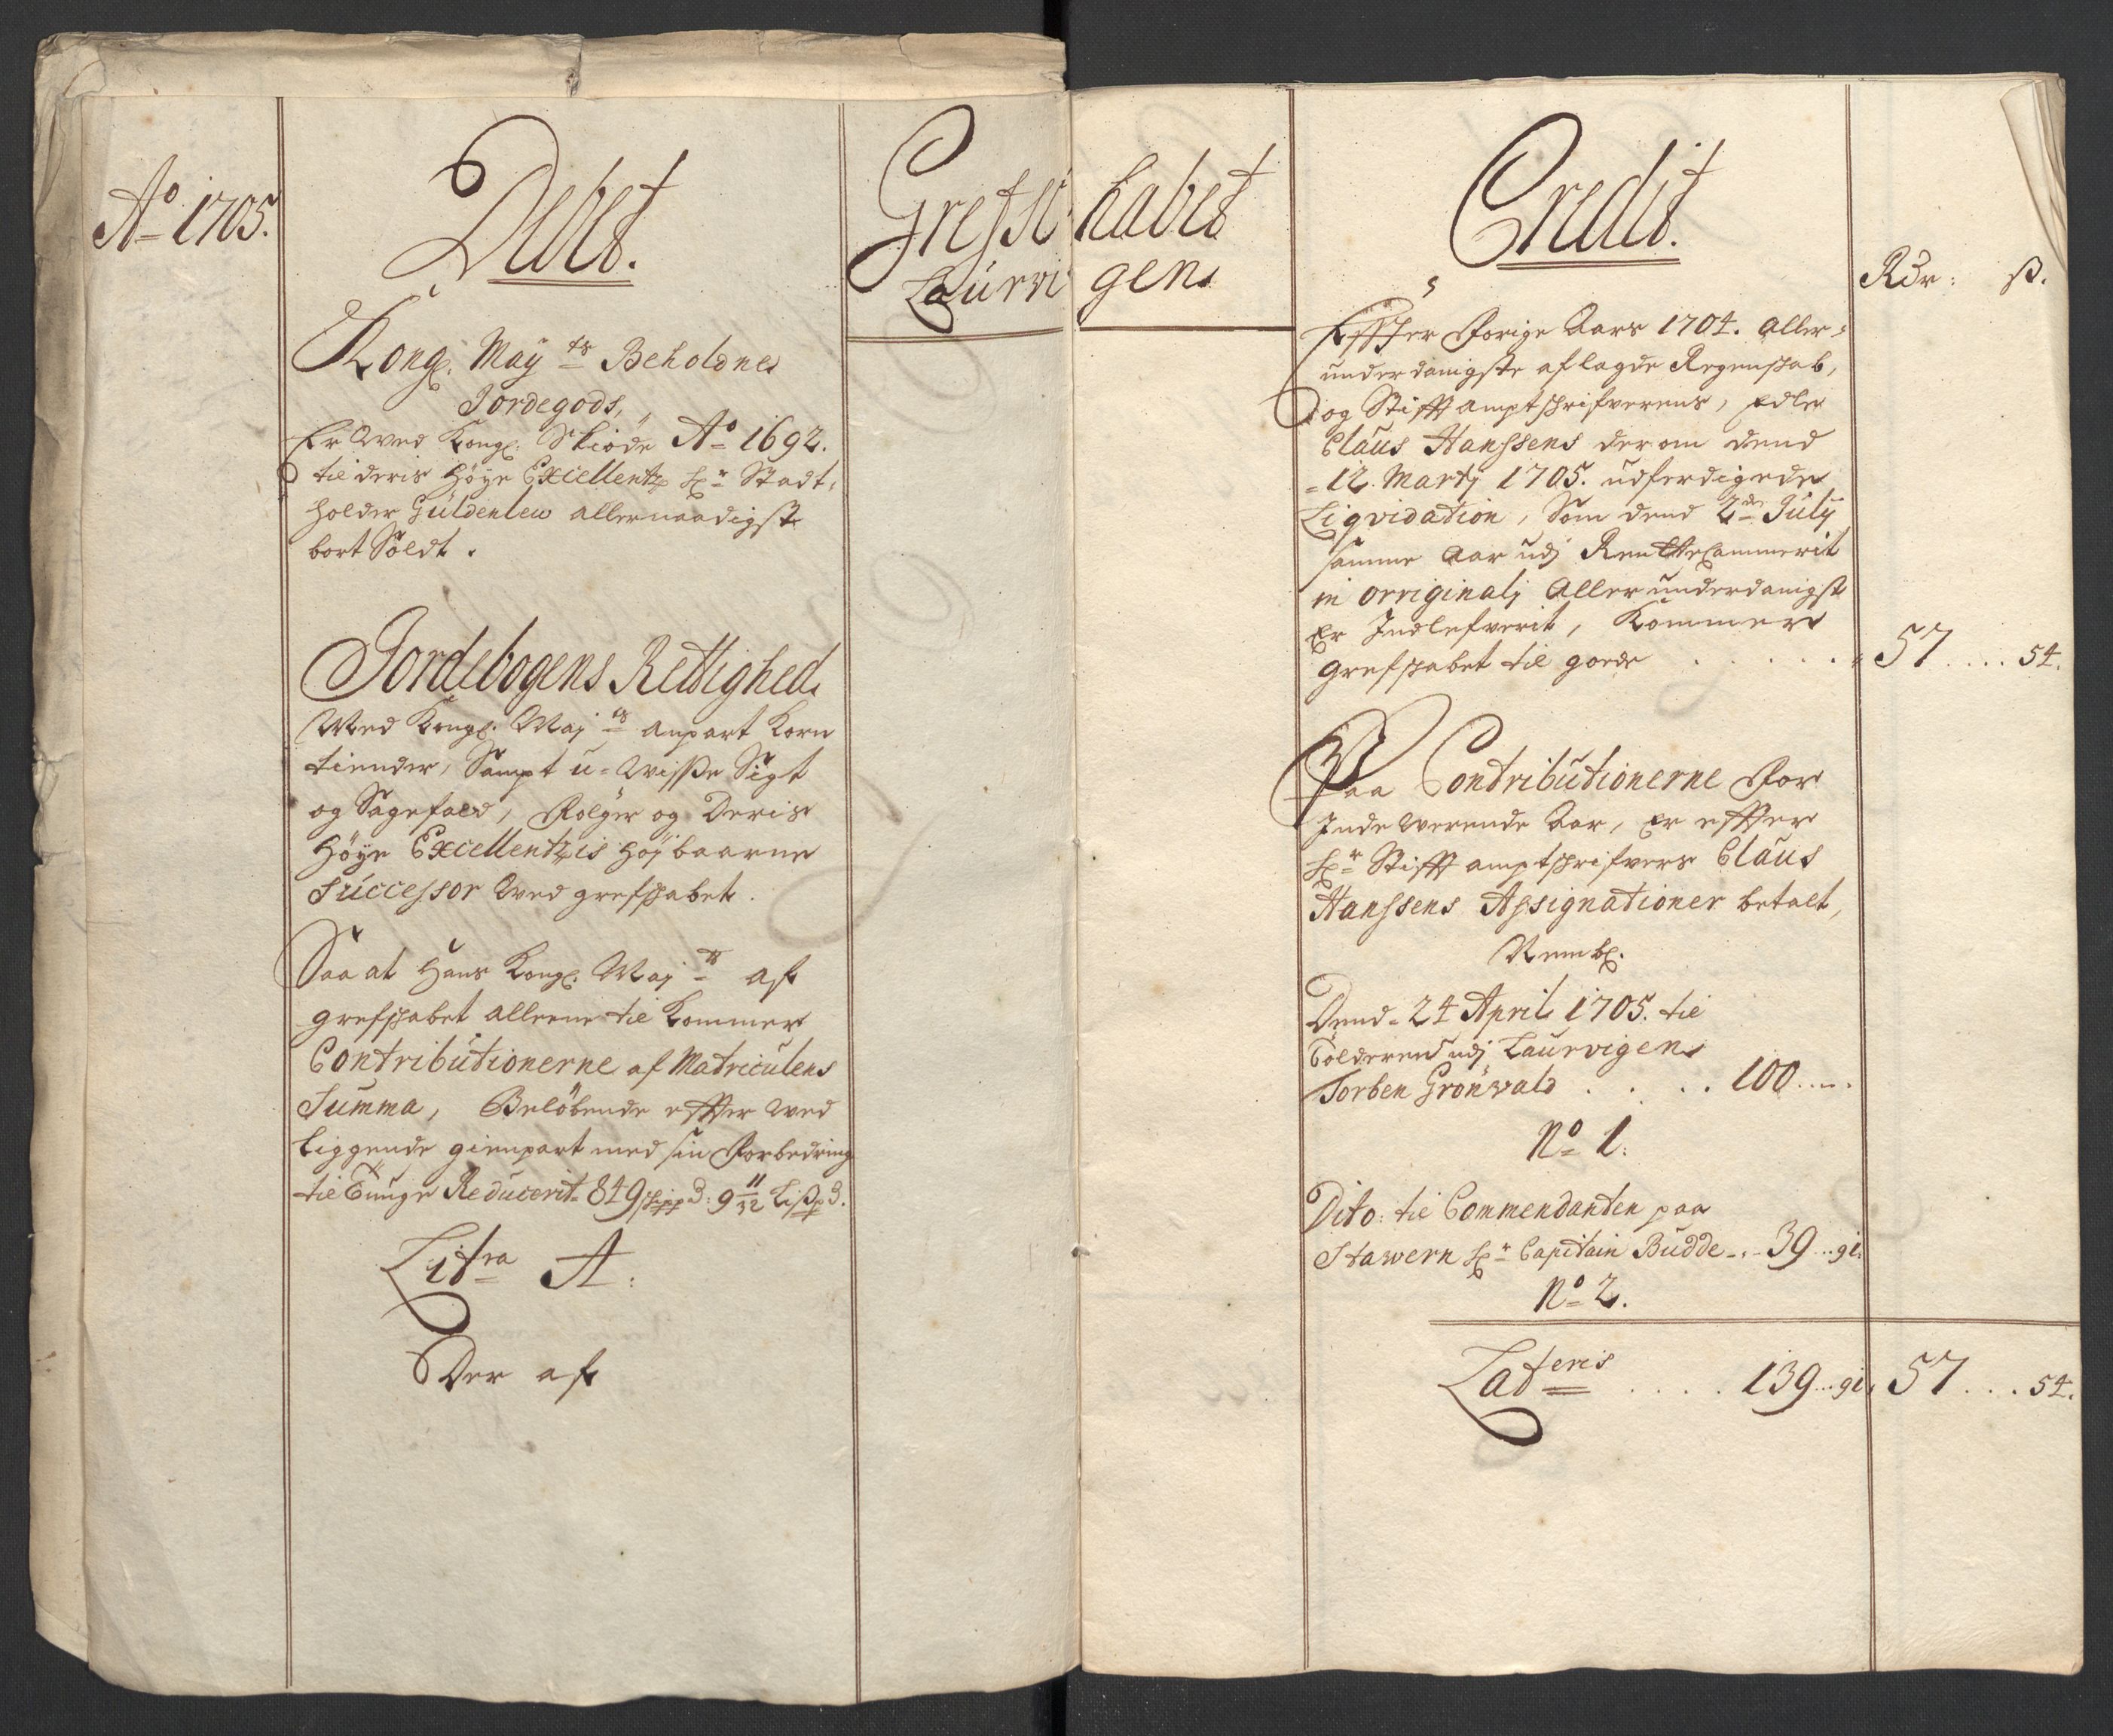 Ao 1705.
Debet.
Grefsc habet
Laurvi gens
Kongl. Mayts Beholdne
Jordegods,
Er Wed Kongl. Skiöde Ao 1692.
til deris Höye Excellentz Hr Stadt-
holder Güldenlew allernaadigst
bort Soldt.
Jordebogens Rettighed
Med Kongl. Majts anpart Korn
tiender, Sampt u-Wisse Sigt
og Sagefald, Folger og Deris
Höye Excellentzis Höjbaarne
Successor Wed grefskabet.
Saa at Hans Kongl. Majts af
grefskabet alleene til Kommer
Contributionerne af Matriculens
Summa, Belöbende effter Wed
liggende gienpart med sin Forbedring
til Tunge Reducerit 849 skipp: 9 11/12 Lisp.
Litra A.
Der af
Credit.
Rdr: ß.
Effter Forige Aars 1704. Aller-
underdanigste aflagde Regenskab,
og Stifftamptskrifverens, Edle
Claus Hanssens derom dend
12. Martj 1705. udferdigede
Liqvidation, Som dend 2de Julij
samme Aar udj RentteCammerit
in orriginalj Allerunderdanigst
Er Indlefverit, Kommer
grefskabet til gode . . . . . 57 .... 54.
Paa Contributionerne For
Indewerende Aar, Er effter
Hr Stifftamptskrifvers Claus
Hanssens Assignationer betalt,
Nembl.
Dend 24 April 1705. til
Tolderen udj Laurvigen
Torben Grönvald . . . . 100 ....
No 1.
Dito: til Commendanten paa
Stawern Hr Capitain Budde - . - 39 .. 91.
No 2.
Lateris . . . . 139 ... 91. 57 . . . 54.